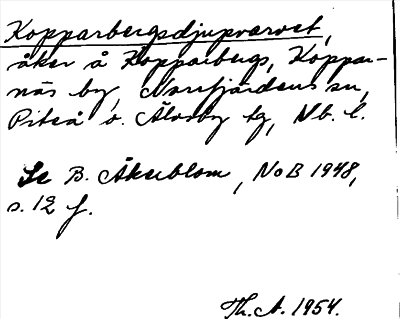 Kopparbergsdjupvarvet,
åker å Kopparbergs, Koppar-
näs by, Norrfjärdens sn,
Piteå o. Älvsby tg, Nb. l.
Se B. Åkerblom, NoB 1948,
s. 12 f.
Th. A. 1954.